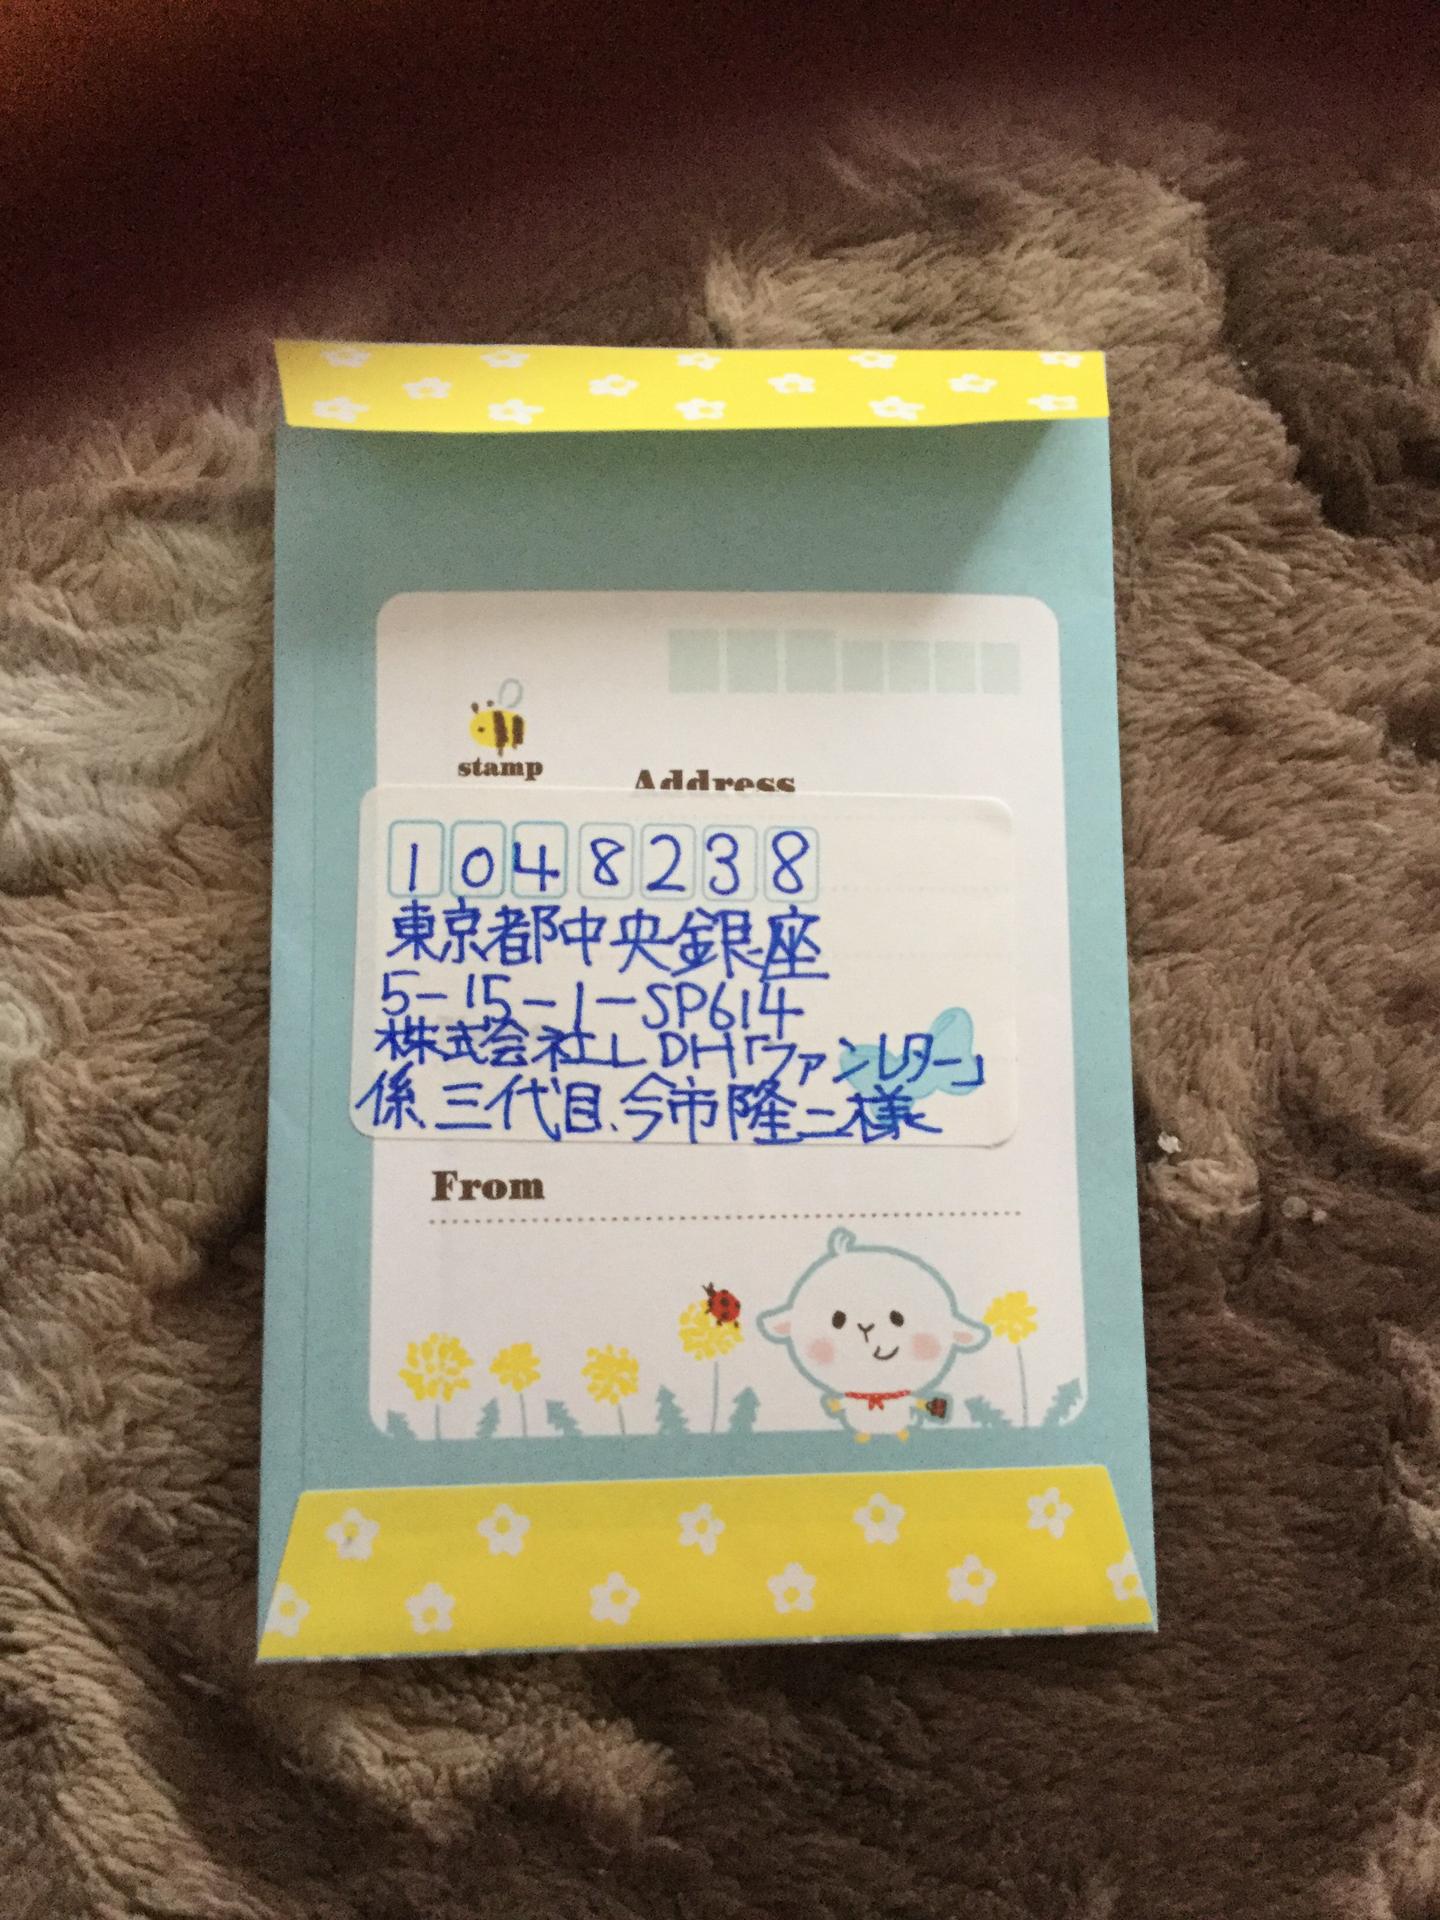 stamp
Address
1048238
東京都中央銀座
5-15-1-SP614
株式会社LDH「ファンレター」
係、三代目、今市隆二様
From